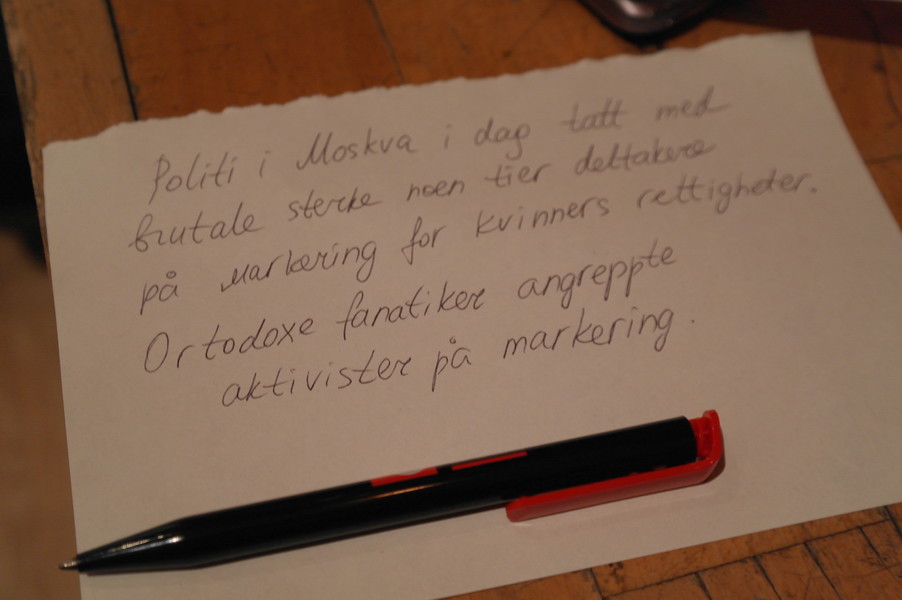 Politi i Moskva i dag tatt med
brutale sterke noen tier deltakere
på markering for kvinners rettigheter.
Ortodoxe fanatiker angreppte
aktivister på markering.